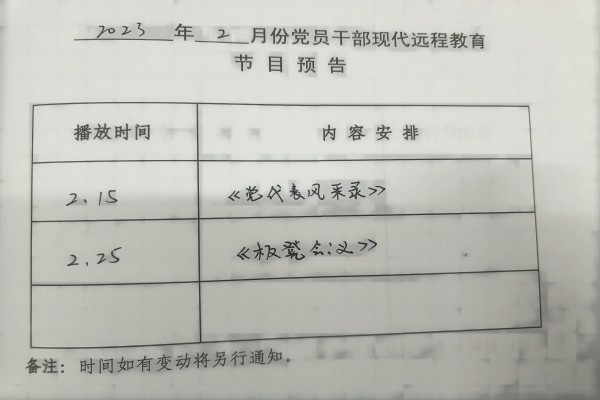 2023 年 2 月份党员干部现代远程教育
节目预告
播放时间 内容安排
2.15 《党代表风采录》
2.25 《板凳会议》
备注：时间如有变动将另行通知。